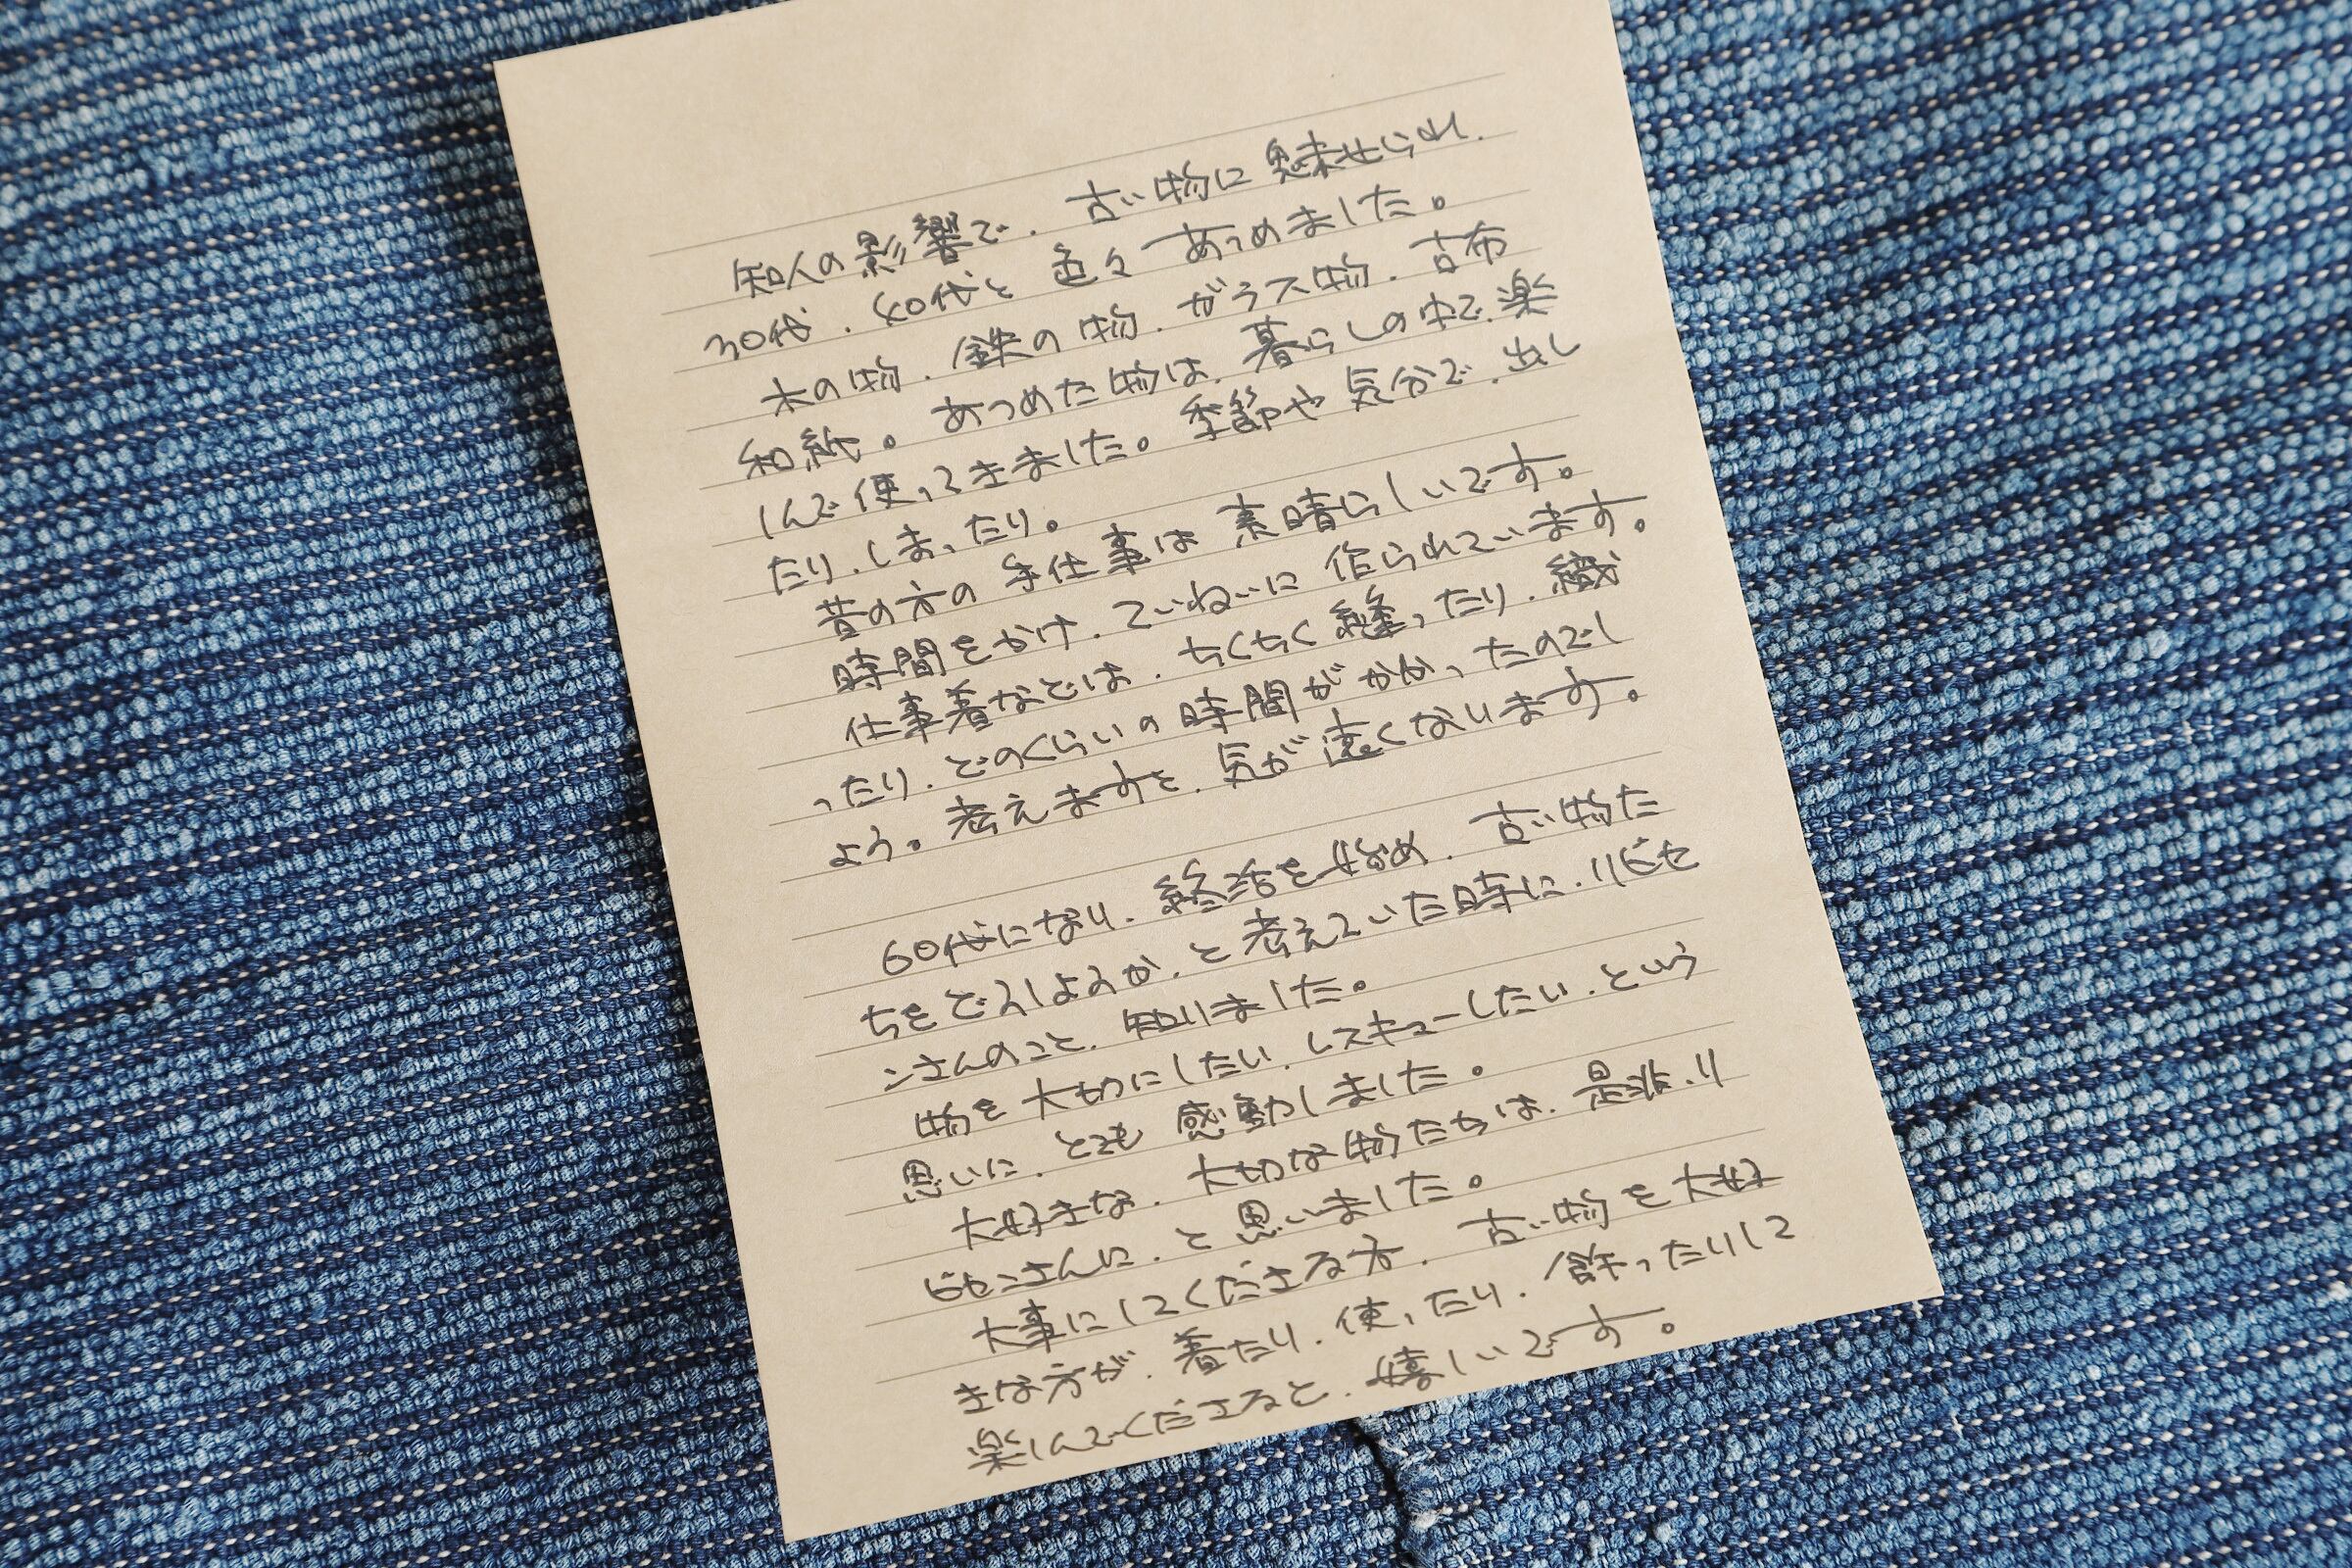 知人の影響で、古い物に魅せられ、
30代、40代と色々あつめました。
木の物、鉄の物、ガラス物、古布
和紙。あつめた物は、暮らしの中で、楽
しんで使ってきました。季節や気分で、出し
たり、しまったり。
昔の方の手仕事は素晴らしいです。
時間をかけ、ていねいに作られています。
仕事着などは、ちくちく縫ったり、織
ったり、どのくらいの時間がかかったのでし
ょう。考えますと、気が遠くなります。
60代になり、終活を始め、古い物た
ちをどうしようか、と考えていた時に、リビセ
ンさんのこと、知りました。
物を大切にしたい、レスキューしたい、という
思いに、とても感動しました。
大好きな、大切な物たちは、是非、リ
ビセンさんに、と思いました。
大事にしてくださる方、古い物を大好
きな方が、着たり、使ったり、飾ったりして
楽しんでくださると、嬉しいです。